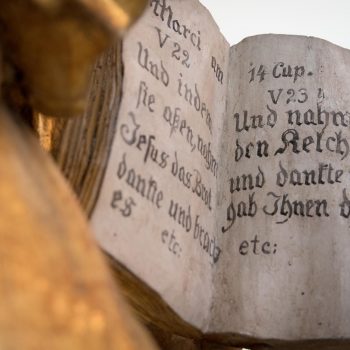 Marci am
V 22
Und indem
sie aßen, nahm
Jesus das Brot
dankte und brach
es
etc:
14 Cap.
V 23
Und nahm
den Kelch
und dankte
gab Ihnen d
etc: